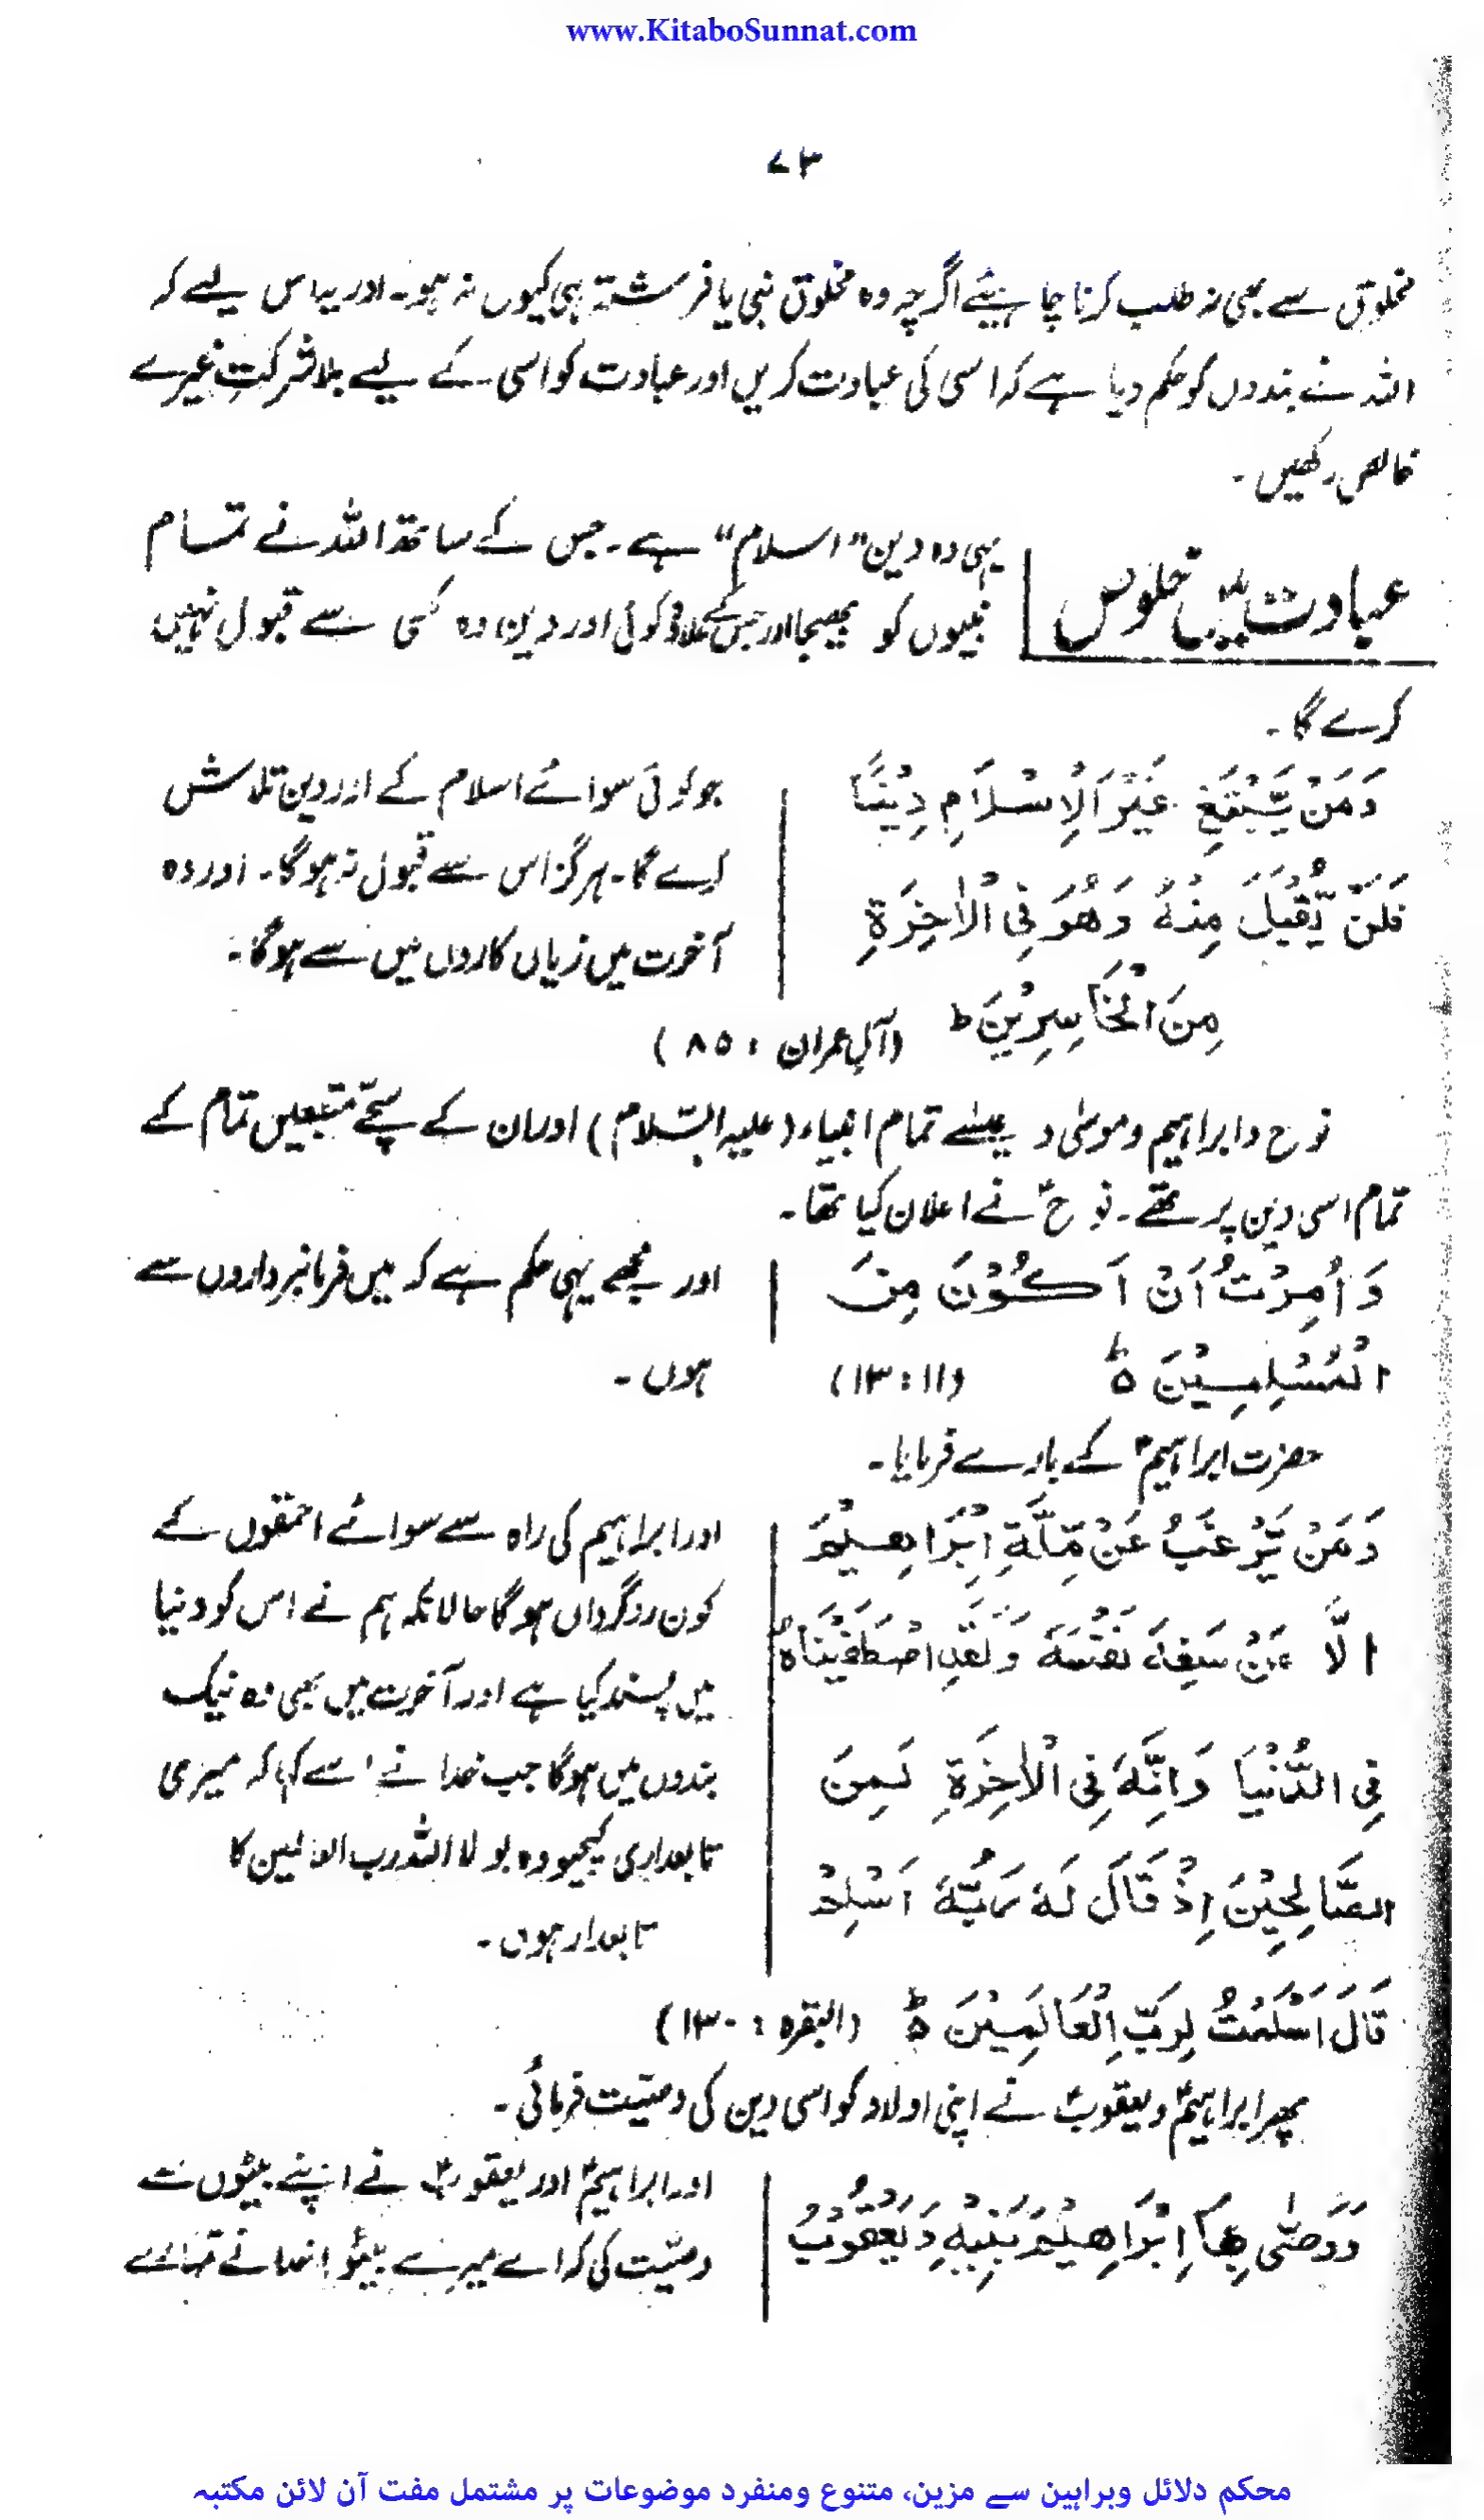 www.KitaboSunnat.com
۷۳
مخلوق سے بھی نہ طلب کرنا چاہیئے اگرچہ وہ مخلوق نبی یا فرشتہ ہی کیوں نہ ہو۔ اور یہ اس لیے کہ
اللہ نے بندوں کو حکم دیا ہے کہ اسی کی عبادت کریں اور عبادت کو اسی کے لیے بلا شرکتِ غیرے
خالص رکھیں۔
عبادت میں خلوص
یہی وہ دین "اسلام" ہے۔ جس کے ساتھ اللہ نے تمام
نبیوں کو بھیجا اور جس کے علاوہ کوئی اور دین وہ کسی سے قبول نہیں
کرے گا۔
وَمَنْ يَّبْتَغِ غَيْرَ الْاِسْلَامِ دِيْنًا
فَلَنْ يُّقْبَلَ مِنْهُ وَهُوَ فِى الْاٰخِرَةِ
مِنَ الْخَاسِرِيْنَ ط (آلِ عمران : ۸۵)
جو کوئی سوائے اسلام کے اور دین تلاش
کرے گا۔ ہرگز اس سے قبول نہ ہوگا۔ اور وہ
آخرت میں زیاں کاروں میں سے ہوگا۔
نوح و ابراہیم و موسیٰ و عیسےٰ تمام انبیاء (علیہ السّلام) اور ان کے سچّے متبعین تمام کے
تمام اسی دین پر تھے۔ نوحؑ نے اعلان کیا تھا۔
وَاُمِرْتُ اَنْ اَكُوْنَ مِنَ
الْمُسْلِمِيْنَ ہ ط (۱۱ : ۱۳)
اور مجھے یہی حکم ہے کہ میں فرمانبرداروں سے
ہوں۔
حضرت ابراہیمؑ کے بارے فرمایا۔
وَمَنْ يَّرْغَبُ عَنْ مِّلَّةِ اِبْرَاهِيْمَ
اِلَّا مَنْ سَفِهَ نَفْسَهٗ وَلَقَدِ اصْطَفَيْنَاهُ
فِى الدُّنْيَا وَاِنَّهٗ فِى الْاٰخِرَةِ لَمِنَ
الصَّالِحِيْنَ اِذْ قَالَ لَهٗ رَبُّهٗ اَسْلِمْ
قَالَ اَسْلَمْتُ لِرَبِّ الْعَالَمِيْنَ ہ ط (البقرہ : ۱۳۰)
اور ابراہیم کی راہ سے سوائے احمقوں کے
کون روگرداں ہوگا حالانکہ ہم نے اس کو دنیا
میں پسند کیا ہے اور آخرت میں بھی وہ نیک
بندوں میں ہوگا جب خدا نے اسے کہا کہ میری
تابعداری کیجیو وہ بولا اللہ رب العالمین کا
تابعدار ہوں۔
پھر ابراہیمؑ و یعقوبؑ نے اپنی اولاد کو اسی دین کی وصیّت فرمائی۔
وَوَصّٰى بِهَا اِبْرَاهِيْمُ بَنِيْهِ وَيَعْقُوْبُ
اور ابراہیمؑ اور یعقوبؑ نے اپنے بیٹوں سے
وصیّت کی کہ اے میرے بیٹو! خدا نے تمہارے
محکم دلائل وبراہین سے مزین، متنوع ومنفرد موضوعات پر مشتمل مفت آن لائن مکتبہ